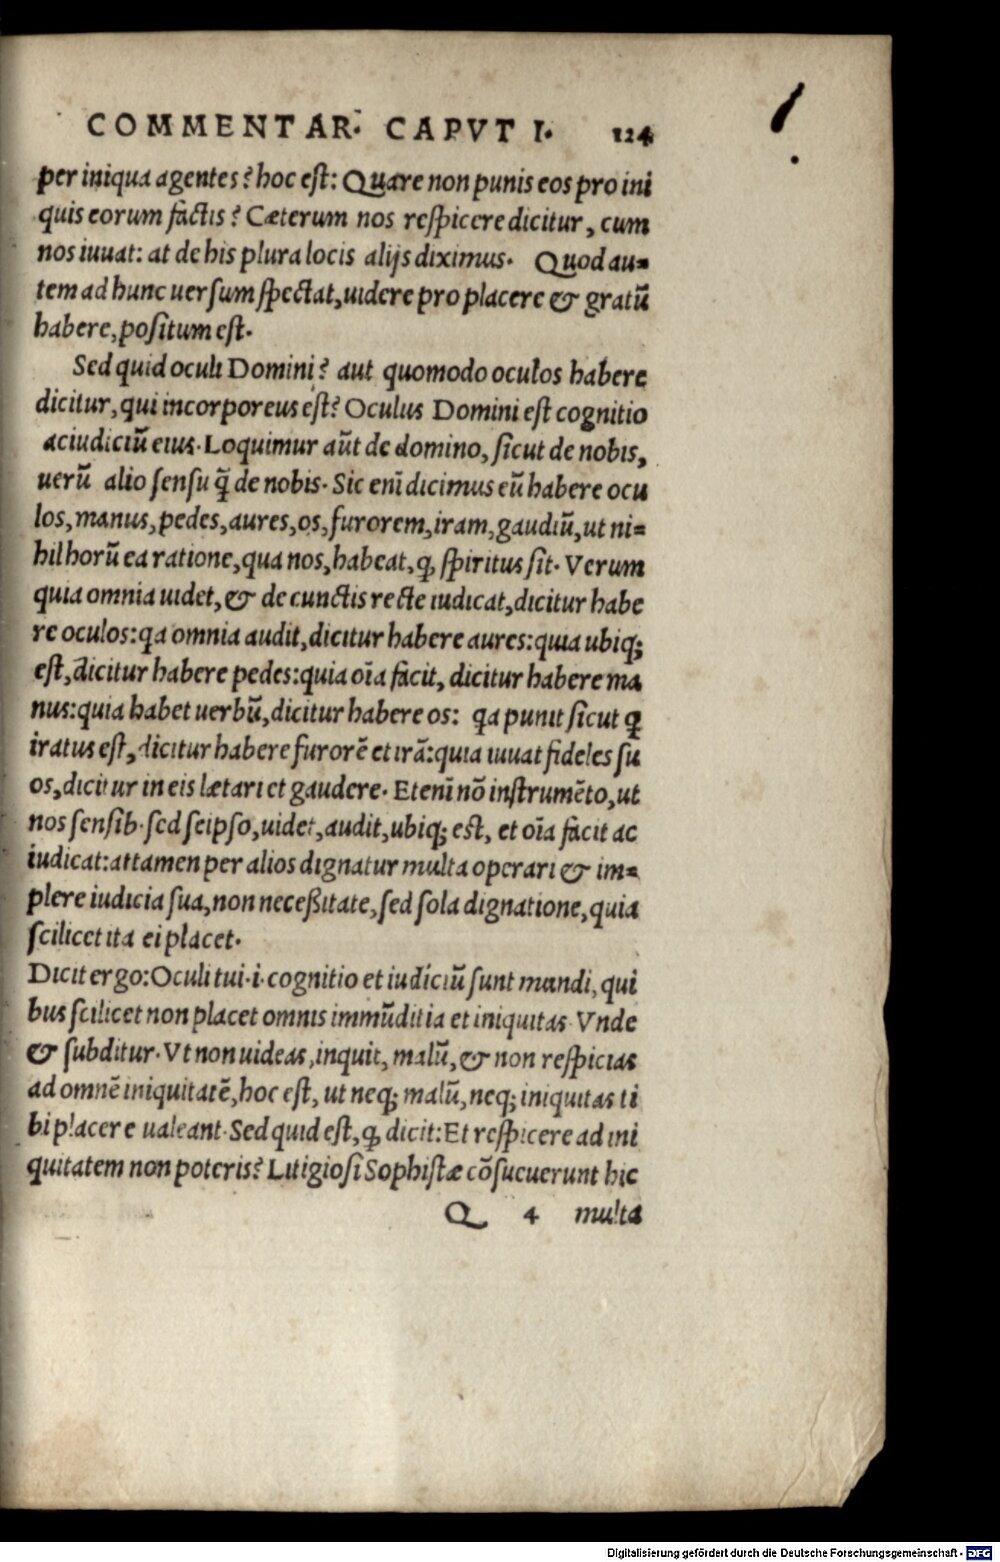 COMMENTAR. CAPVT I. 124
per iniqua agentes? hoc est: Quare non punis eos pro ini
quis eorum factis? Cæterum nos respicere dicitur, cum
nos iuuat: at de his plura locis alijs diximus. Quod au=
tem ad hunc uersum spectat, uidere pro placere & gratū
habere, positum est.
Sed quid oculi Domini? aut quomodo oculos habere
dicitur, qui incorporeus est? Oculus Domini est cognitio
ac iudiciū eius. Loquimur aūt de domino, sicut de nobis,
uerū alio sensu q̄ de nobis. Sic enī dicimus eū habere ocu
los, manus, pedes, aures, os, furorem, iram, gaudiū, ut ni=
hil horū ea ratione, qua nos, habeat, ꝙ spiritus sit. Verum
quia omnia uidet, & de cunctis recte iudicat, dicitur habe
re oculos: qa omnia audit, dicitur habere aures: quia ubiq;
est, dicitur habere pedes: quia oīa facit, dicitur habere ma
nus: quia habet uerbū, dicitur habere os: qa punit sicut q
iratus est, dicitur habere furorē et irā: quia iuuat fideles su
os, dicitur in eis lætari et gaudere. Etenī nō instrumēto, ut
nos sensib. sed seipso, uidet, audit, ubiq; est, et oīa facit ac
iudicat: attamen per alios dignatur multa operari & im=
plere iudicia sua, non neceßitate, sed sola dignatione, quia
scilicet ita ei placet.
Dicit ergo: Oculi tui .i. cognitio et iudiciū sunt mundi, qui
bus scilicet non placet omnis immūditia et iniquitas. Vnde
& subditur. Vt non uideas, inquit, malū, & non respicias
ad omnē iniquitatē, hoc est, ut neq; malū, neq; iniquitas ti
bi placere ualeant. Sed quid est, ꝙ dicit: Et respicere ad ini
quitatem non poteris? Litigiosi Sophistæ cōsueuerunt hic
Q 4 multa
Digitalisierung gefördert durch die Deutsche Forschungsgemeinschaft - DFG